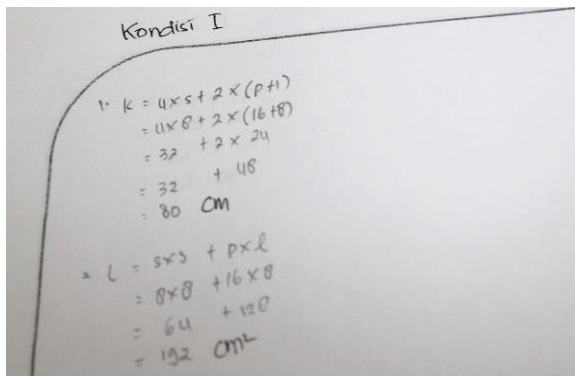 Kondisi I
1. K = 4 x s + 2 x (p+l)
= 4x8 + 2 x (16+8)
= 32 + 2 x 24
= 32 + 48
= 80 cm
2 L = sxs + pxl
= 8x8 + 16x8
= 64 + 128
= 192 cm²